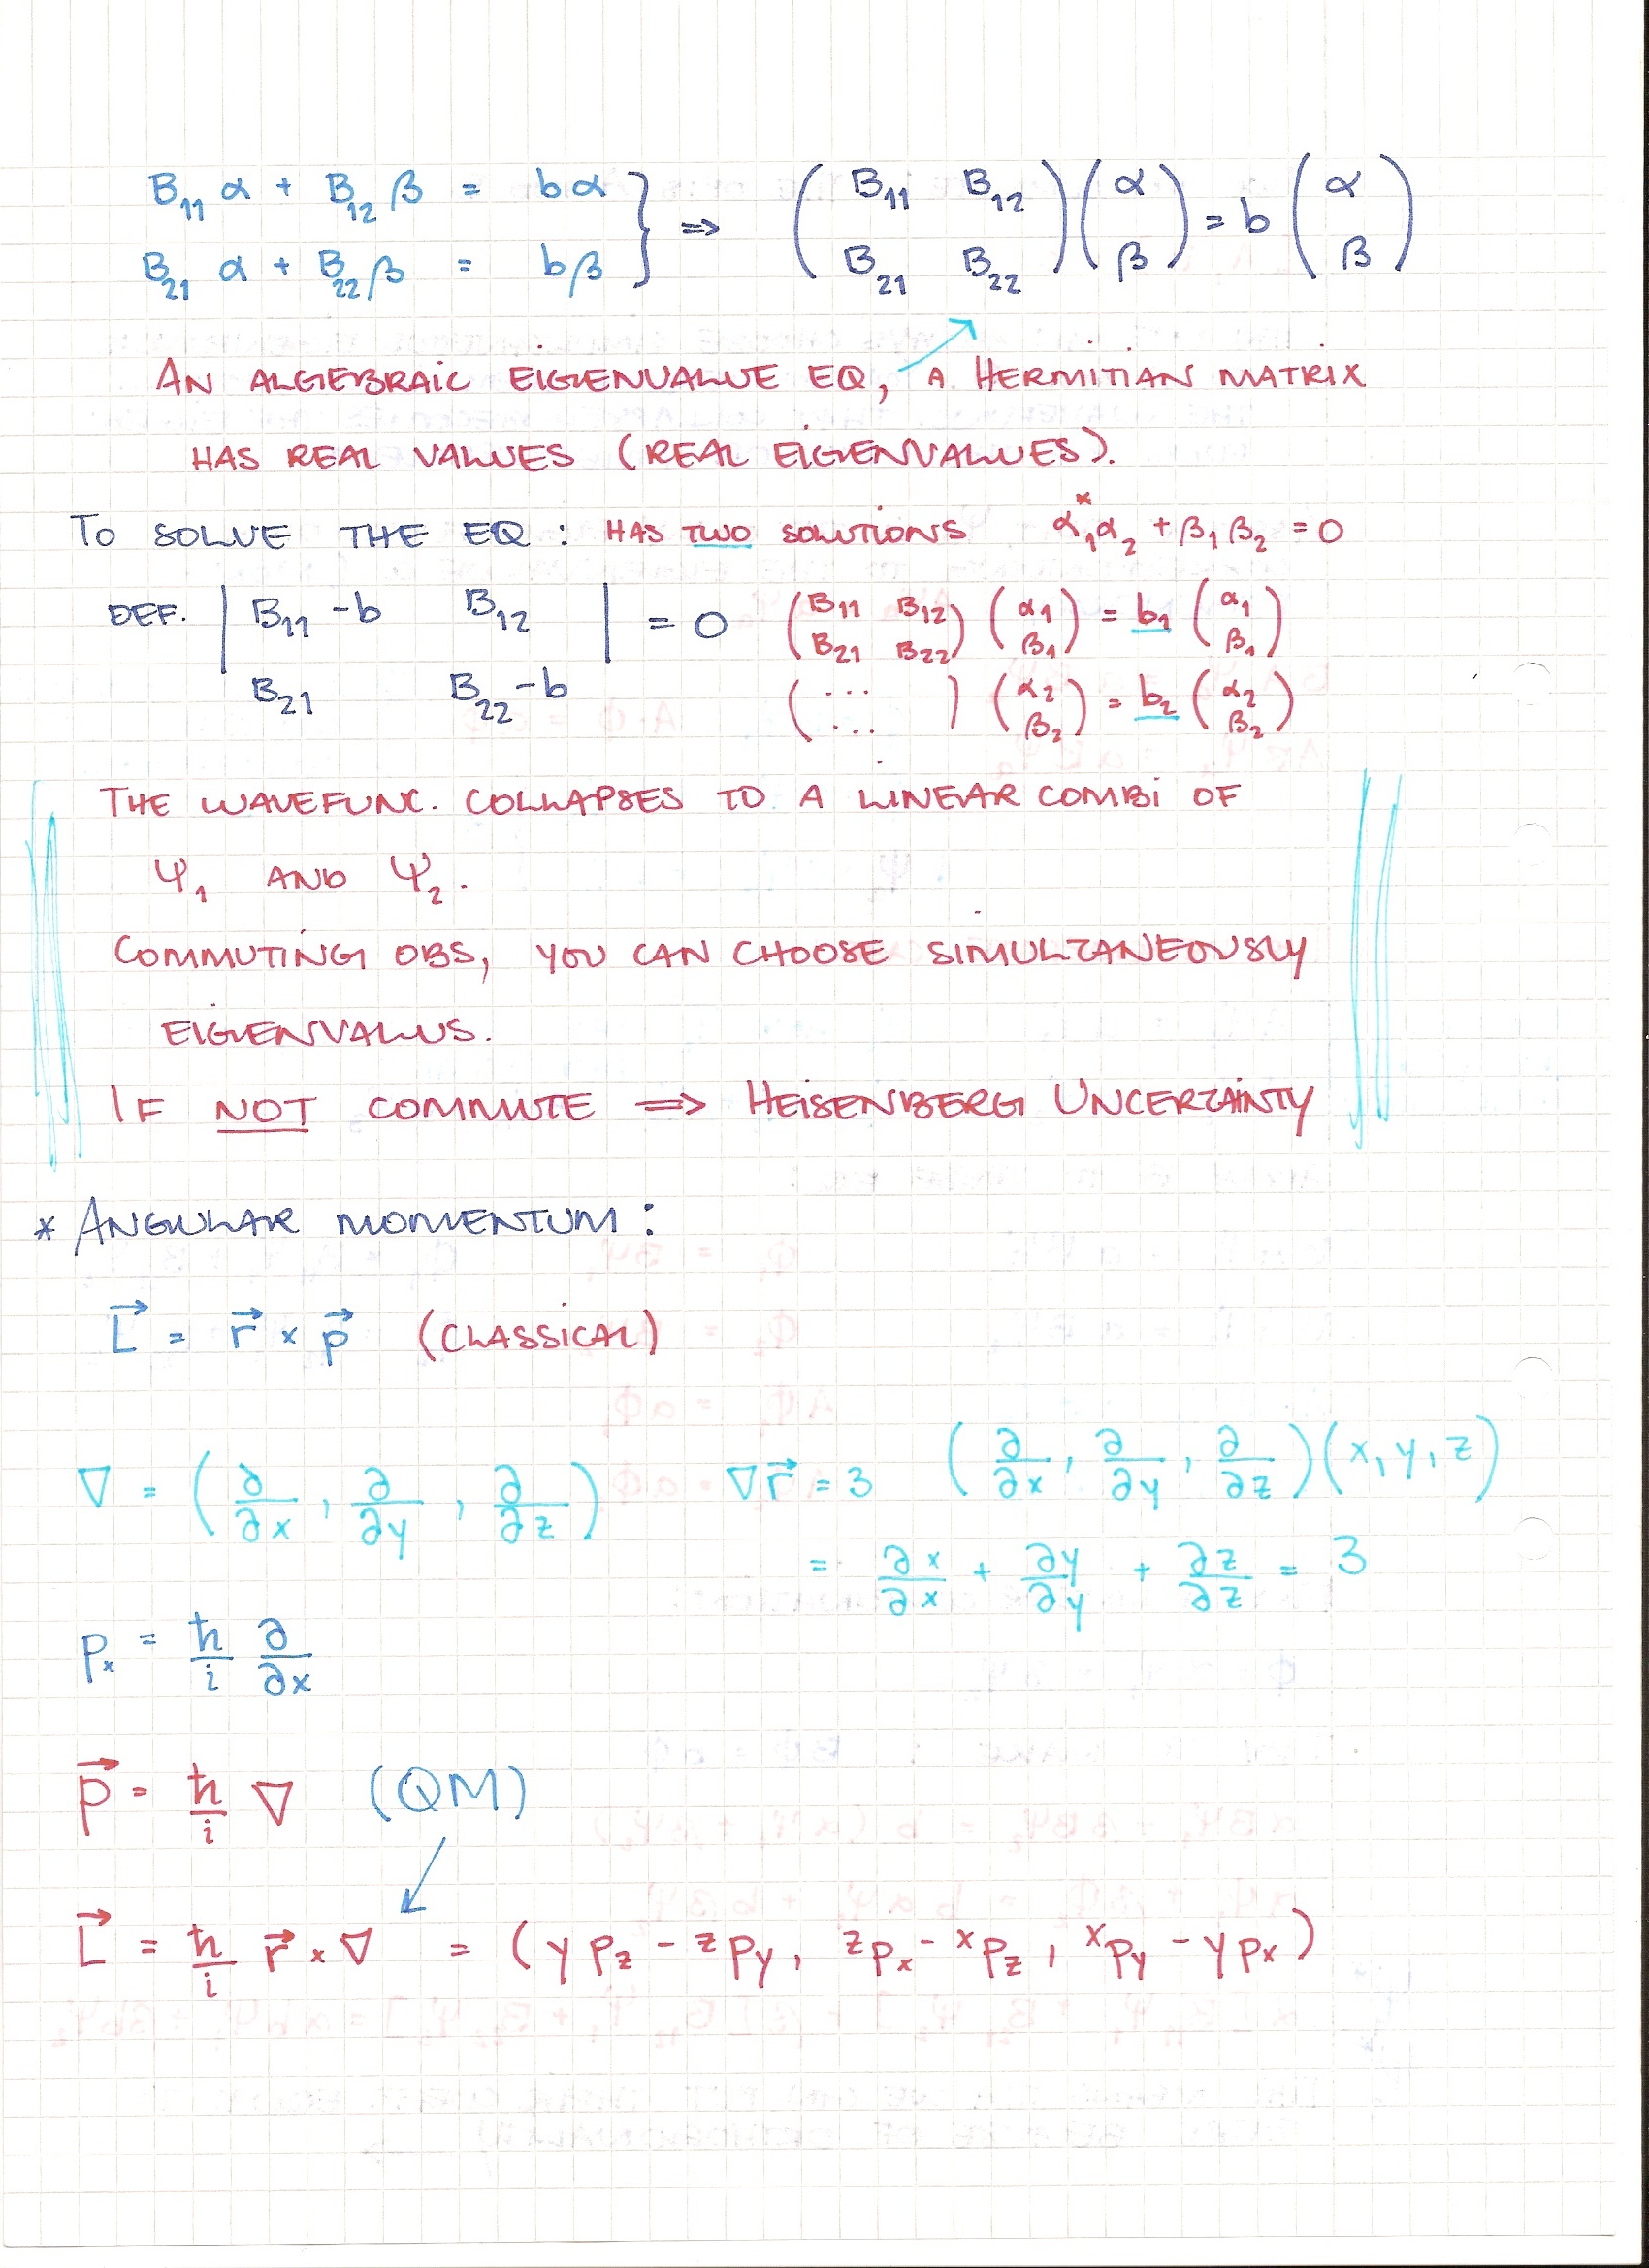 B₁₁ α + B₁₂ β = bα } ⇒ ( B₁₁ B₁₂ ) ( α ) = b ( α )
B₂₁ α + B₂₂ β = bβ } ( B₂₁ B₂₂ ) ( β ) ( β )
AN ALGEBRAIC EIGENVALUE EQ, A HERMITIAN MATRIX
HAS REAL VALUES (REAL EIGENVALUES).
TO SOLVE THE EQ : HAS TWO SOLUTIONS α₁* α₂ + β₁ β₂ = 0
DEF. | B₁₁ - b B₁₂ | = 0 ( B₁₁ B₁₂ ) ( α₁ ) = b₁ ( α₁ )
( B₂₁ B₂₂ ) ( β₁ ) ( β₁ )
B₂₁ B₂₂ - b ( ... ) ( α₂ ) = b₂ ( α₂ )
( ... ) ( β₂ ) ( β₂ )
THE WAVEFUNC. COLLAPSES TO A LINEAR COMBI OF
Ψ₁ AND Ψ₂.
COMMUTING OBS, YOU CAN CHOOSE SIMULTANEOUSLY
EIGENVALUS.
IF NOT COMMUTE ⇒ HEISENBERG UNCERTAINTY
* ANGULAR MOMENTUM :
L⃗ = r⃗ × p⃗ (CLASSICAL)
∇ = ( ∂/∂x , ∂/∂y , ∂/∂z ) ∇r⃗ = 3 ( ∂/∂x , ∂/∂y , ∂/∂z ) ( x, y, z )
= ∂x/∂x + ∂y/∂y + ∂z/∂z = 3
pₓ = ħ/i ∂/∂x
p⃗ = ħ/i ∇ (QM)
L⃗ = ħ/i r⃗ × ∇ = ( y p_z - z p_y , z p_x - x p_z , x p_y - y p_x )